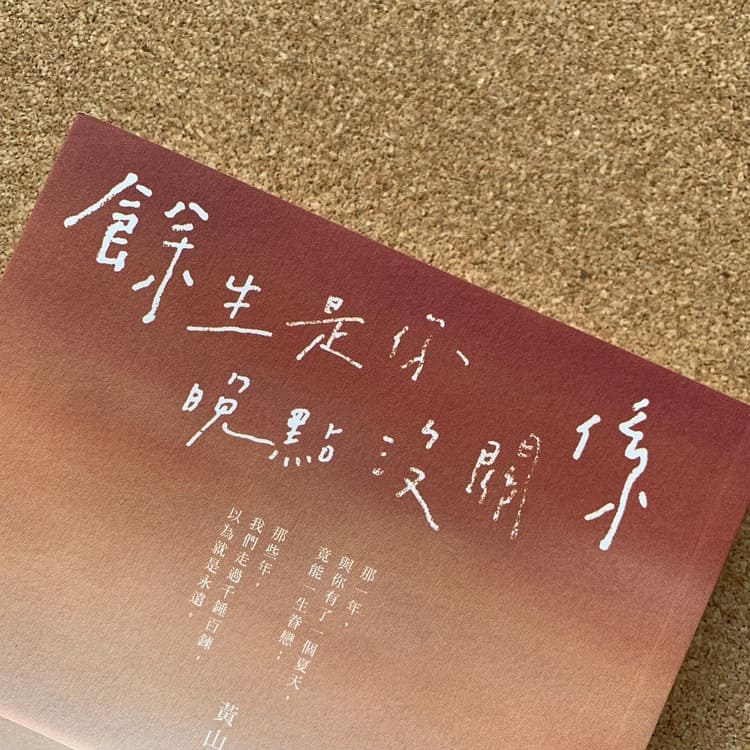 餘生是你
晚點沒關係
那一年，
與你有了一個夏天，
竟能一生眷戀；
那些年，
我們走過千錘百鍊，
以為就是永遠。
黃山